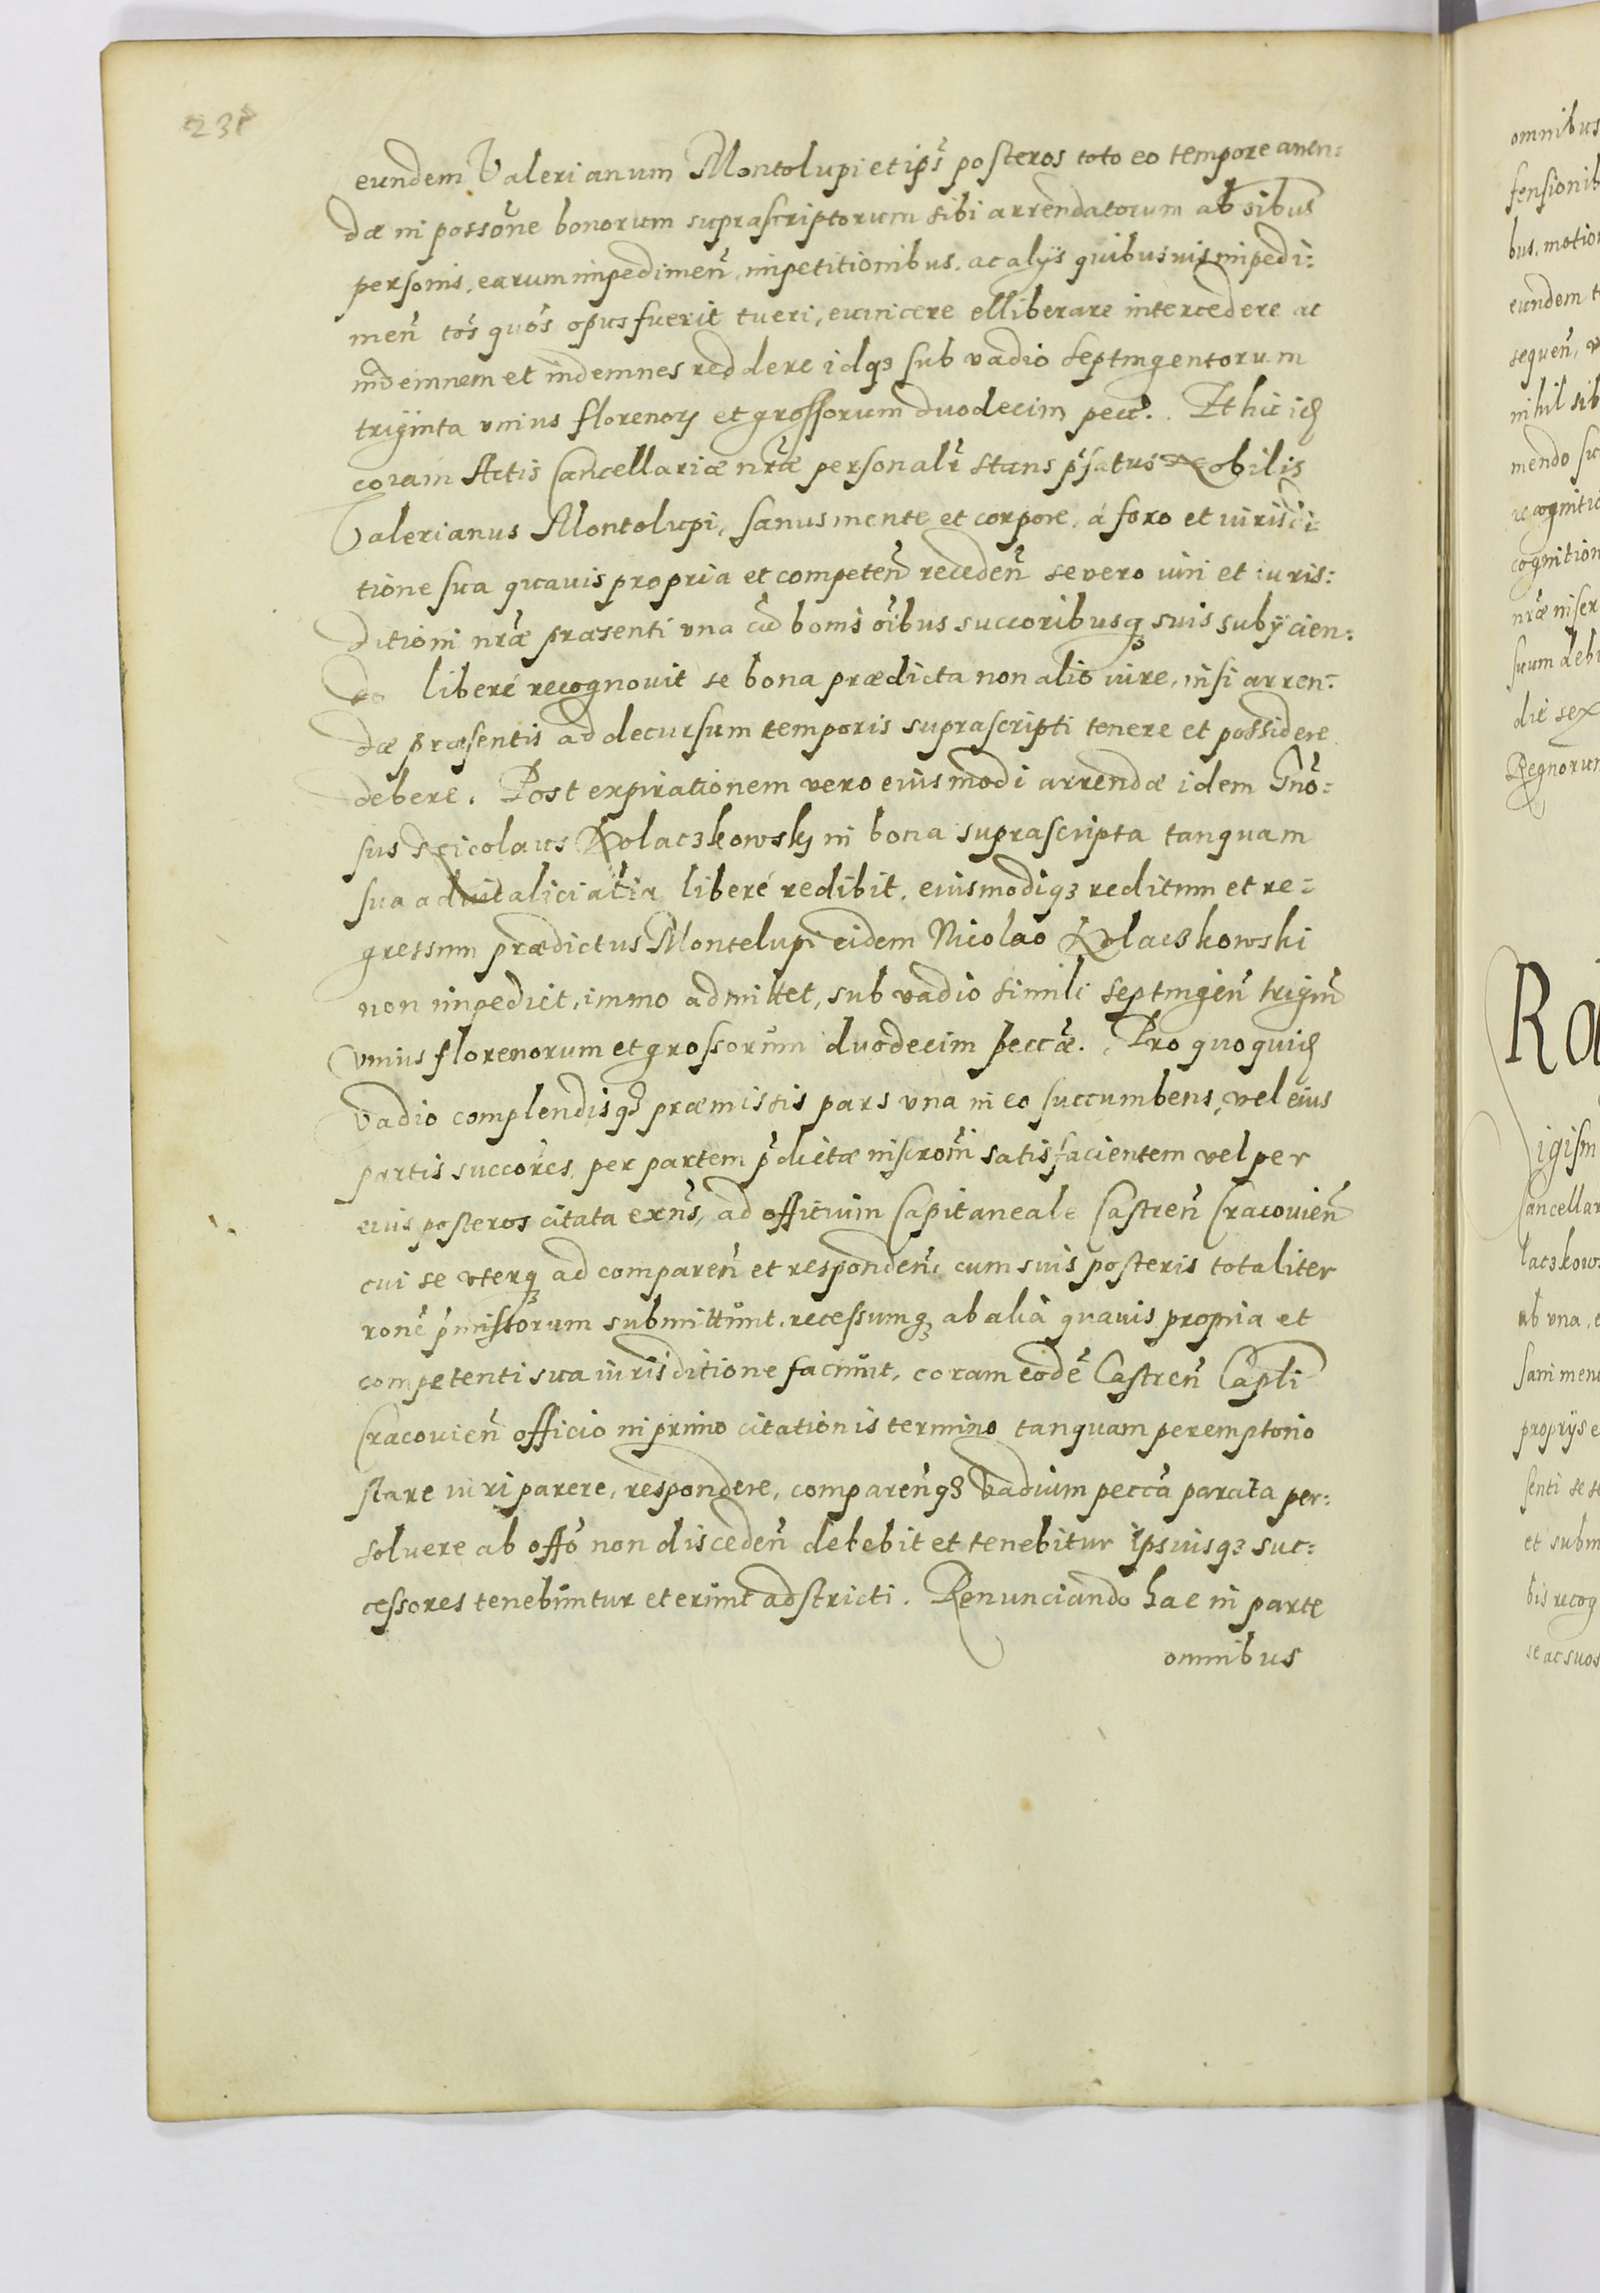 231
eundem Valerianum Montolupi et ips̃ posteros toto eo tempore arren:
dæ in possõne bonorum suprascriptorum sibi arrendatorum ab õibus
personis, earum impedimen̄, impetitionibus, ac alijs quibusuis impedi:
men̄ tos̃ quos̃ opus fuerit tueri, euincere elliberare intercedere ac
indemnem et indemnes reddere idq3 sub vadio septingentorum
triginta vnius florenorꝫ et grossorum duodecim pecc̃. Et hic id
coram Actis Cancellariæ nrãe personalr̃ stans p̃fatus Nobilis
Valerianus Montolupi, sanus mente et corpore, á foro et iurisdi:
tione sua quauis propria et competen̄ receden̄ se vero iuri et iuris:
ditioni nrãe præsenti vna cũ bonis õibus successoribusq3 suis subijcien:
do liberé recognouit se bona prædicta non alio iure, nisi arren:
dæ præsentis ad decursum temporis suprascripti tenere et possidere
debere. Post expirationem vero eiusmodi arrendæ idem Gnõ:
sus Nicolaus Kolaczkowskj in bona suprascripta tanquam
sua aduitalicialia liberé redibit, eiusmodiq3 reditum et re:
gressum prædictus Montelupi eidem Nicolao Kolaczkowski
non impediet, immo admittet, sub vadio simili septingen̄ trigin̄
vnius florenorum et grossorum duodecim peccæ̃. Pro quo quid
vadio complendisq3 præmissis pars vna in eo succumbens, vel eius
partis succor̃es per partem p̃dictæ inscrõni satisfacientem vel per
eius posteros citata exñs, ad officium Capitaneale Castren̄ Cracouien̄
cui se vterq3 ad comparen̄ et responden̄, cum suis posteris totaliter
ronẽ p̃missorum submittunt, recessumq3 ab aliâ quauis propria et
competenti sua iurisditione faciunt, coram eodẽ Castren̄ Capli
Cracouien̄ officio in primo citationis termino tanquam peremptorio
stare iuri parere, respondere, comparen̄q3 vadium peccã parata per:
soluere ab offõ non disceden̄ debebit et tenebitur ipsiusq3 suc:
cessores tenebuntur et erunt adstricti. Renunciando hac in parte
omnibus
omnibus
fensionib
bus, motion
eundem t
sequen̄, v
nihil sib
mendo su
recognitio
cognition
nrãe inser
suum debi
die sex
Regnorum
Ra
igism
Cancellar
laczkows
ab vna, e
sani men
proprijs e
senti se s
et subm
bis recog
se ac suos